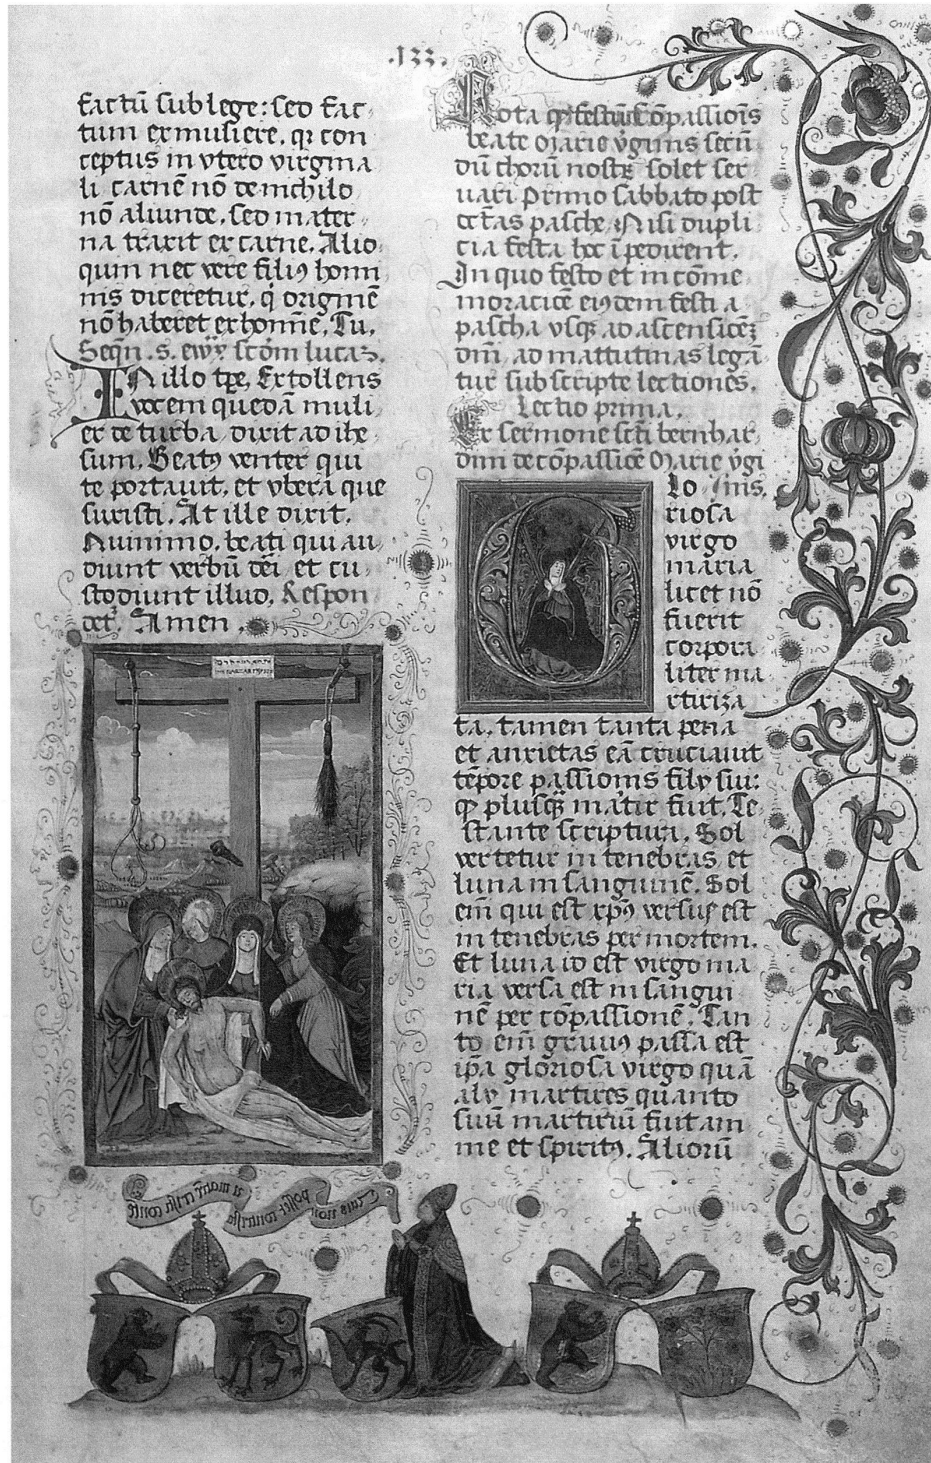 .133.
factū sub lege: sed fac-
tum ex muliere. qr con
ceptus in vtero virgina
li carnē nō de nichilo
nō aliunde. sed mater-
na traxit ex carne. Alio-
quin nec vere filiꝰ homi
nis diceretur, qͥ originē
nō haberet ex homīe. Tu.
Seqn̄. s. ewͣ sc̄dm lucaꝫ.
IN illo tp̄e, Extollens
vocem quedā muli-
er de turba dixit ad ihe-
sum. Beatꝰ venter qui
te portauit, et vbera que
suxisti. At ille dixit.
Quinimo. beati qui au-
diunt verbū dei et cu-
stodiunt illud. Respon
det. Amen.
Nota qͩ festum cōpassiōis
beate Marie vg̓inis secū
dū chorū nostrꝫ solet ser-
uari Primo sabbato post
octas pasche. Nisi dupli
cia festa hoc īpedirent.
In quo festo et in cōme
moratiōe eiꝰdem festi a
pascha vsqꝫ ad ascensiōeꝫ
dni, ad mattutinas legā
tur subscripte lectiones.
Lectio prima.
Ex sermone scti bernhar-
dini de cōpassiōe Marie vg̓i
nis.
Glo
riosa
virgo
maria
licet nō
fuerit
corpora
liter ma
rtiriza
ta, tamen tanta pena
et anxietas eā cruciauit
tēpore passionis filij sui:
qͩ plusqꝫ martir fuit. Te-
stante scriptura. Sol
vertetur in tenebras et
luna in sanguinē. Sol
em̄ qui est xp̄ꝰ versus est
in tenebras per mortem.
Et luna id est virgo ma
ria versa est in sangui
nē per cōpassionē. Tan
to em̄ grauiꝰ passa est
ip̄a gloriosa virgo quā
alij martires quanto
suū martiriū fuit ani
me et spiritꝰ. Aliorū
Quis non posset contristari